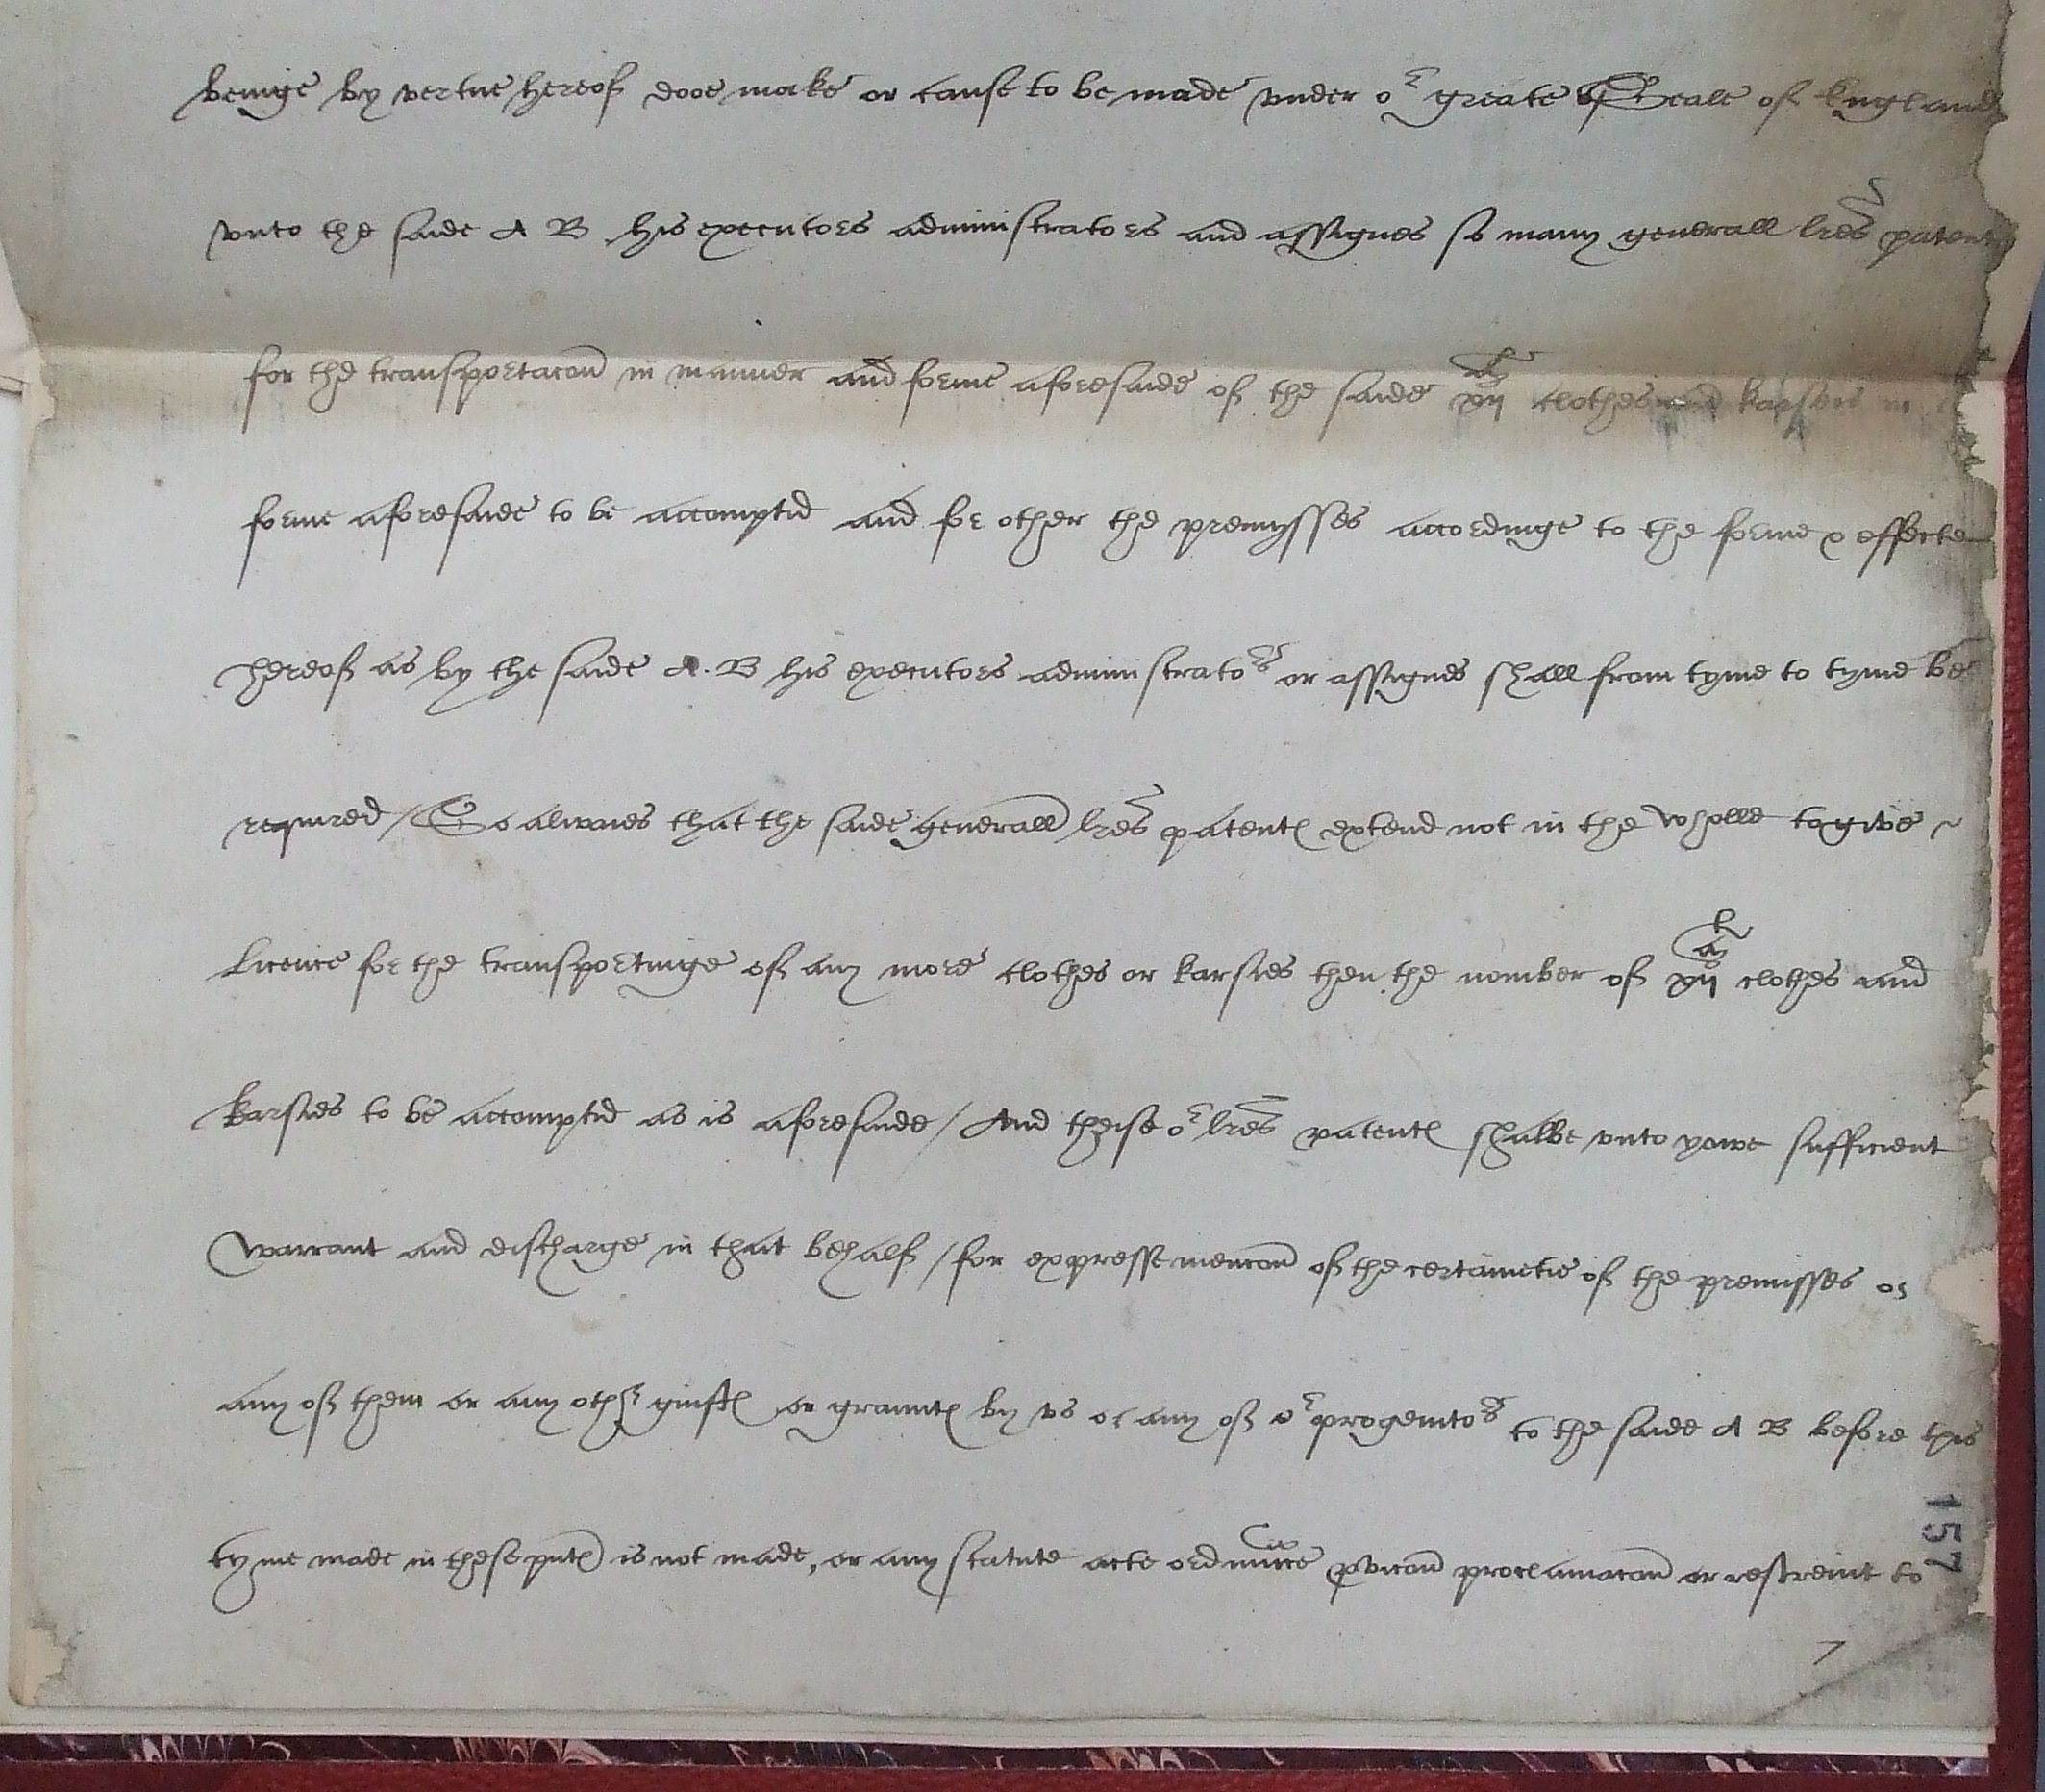 beinge by vertue hereof dooe make or cause to be made vnder or greate Seale of England
vnto the saide A B his executors administrators and assignes so many generall lres patent
for the transportacon in manner and forme aforesaide of the saide xij clothes and karsies in
forme aforesaide to be accomptid and for other the premysses accordinge to the forme & effecte
hereof as by the saide A. B his executors administrators or assignes shall from tyme to tyme be
required / So alwaies that the saide generall lres patentes extend not in the wholle to give ~
licence for the transportinge of any more clothes or karsies then the nomber of xij clothes and
karsies to be accomptid as is aforesaide / And theise or lres patentes shalbe vnto yowe sufficient
warrant and discharge in that behalf / for expresse mencon of the certaintie of the premisses or
any of them or any other guiftes or grauntes by vs or any of or progenitors to the saide A B before this
tyme made in these pntes is not made, or any statute acte ordinance pvicon proclamacon or restreint to
157
7